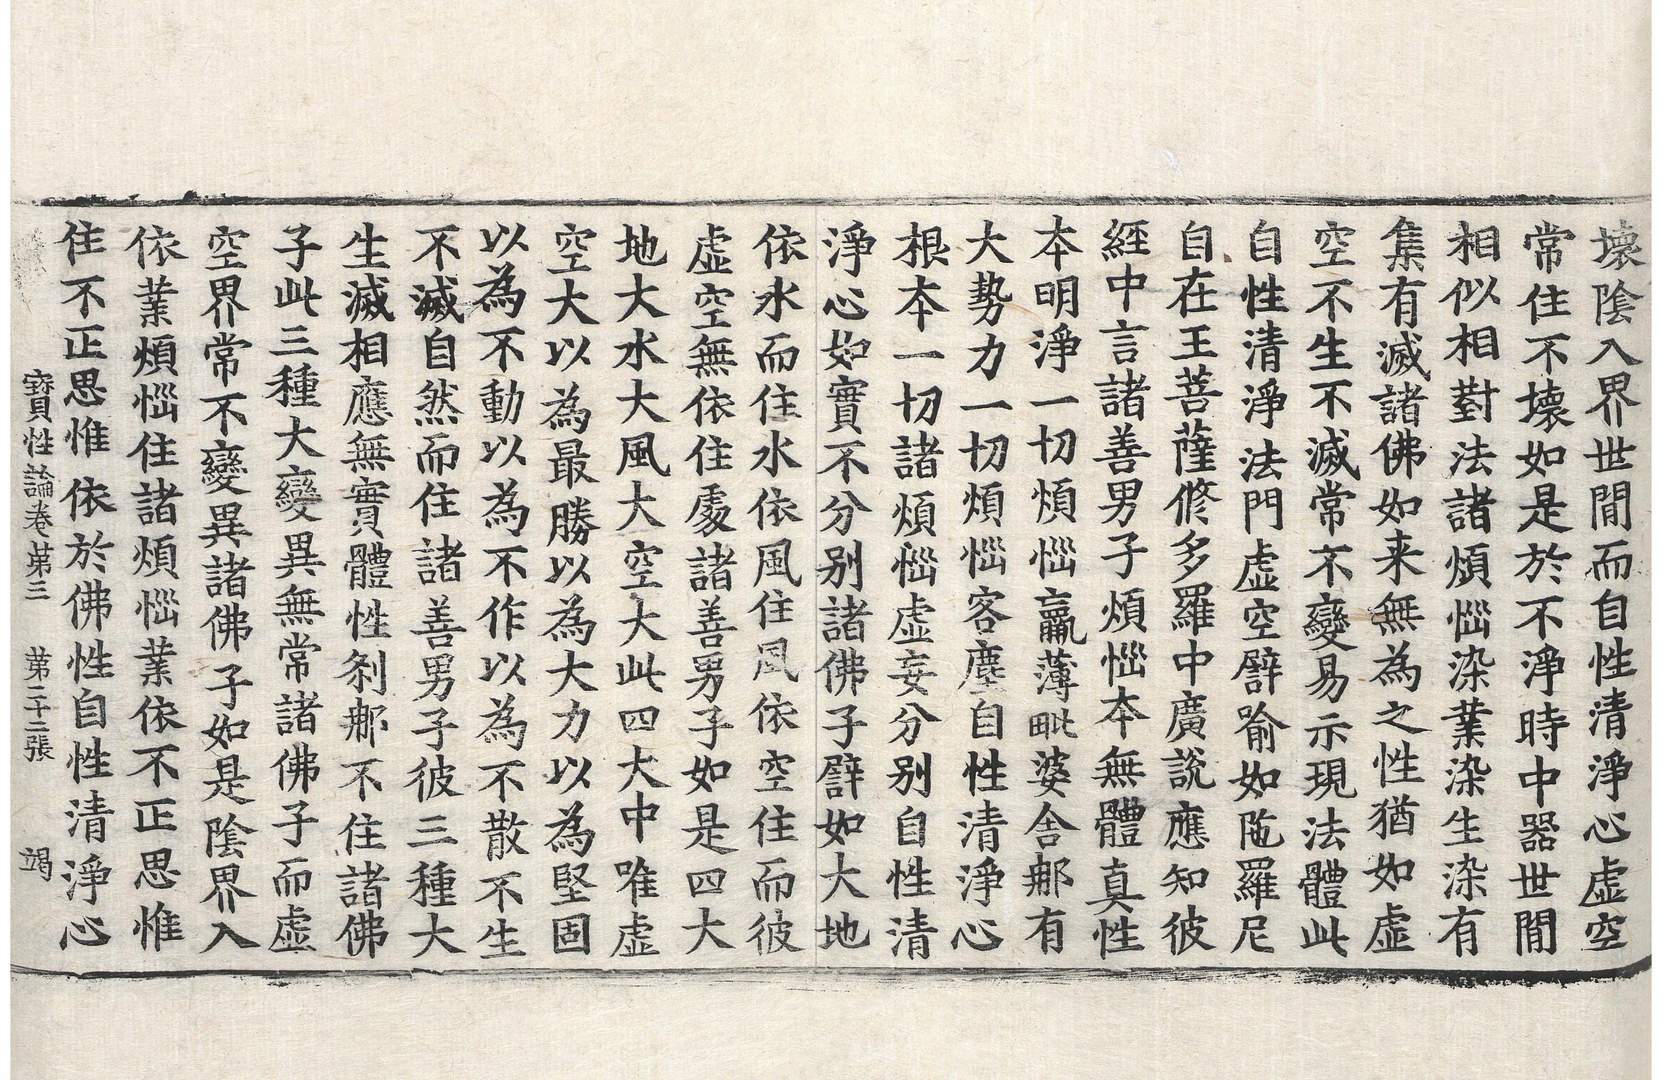 壞陰入界世間而自性清淨心虛空
常住不壞如是於不淨時中器世間
相似相對法諸煩惱染業染生染有
集有滅諸佛如来無為之性猶如虛
空不生不滅常不變易示現法體此
自性清淨法門虛空譬喻如陁羅尼
自在王菩薩修多羅中廣說應知彼
經中言諸善男子煩惱本無體真性
本明淨一切煩惱羸薄毗婆舍那有
大勢力一切煩惱客塵自性清淨心
根本一切諸煩惱虛妄分别自性清
淨心如實不分别諸佛子譬如大地
依水而住水依風住風依空住而彼
虛空無依住處諸善男子如是四大
地大水大風大空大此四大中唯虛
空大以為最勝以為大力以為堅固
以為不動以為不作以為不散不生
不滅自然而住諸善男子彼三種大
生滅相應無實體性剎那不住諸佛
子此三種大變異無常諸佛子而虛
空界常不變異諸佛子如是陰界入
依業煩惱住諸煩惱業依不正思惟
住不正思惟依於佛性自性清淨心
寶性論卷第三 第二十二張 竭